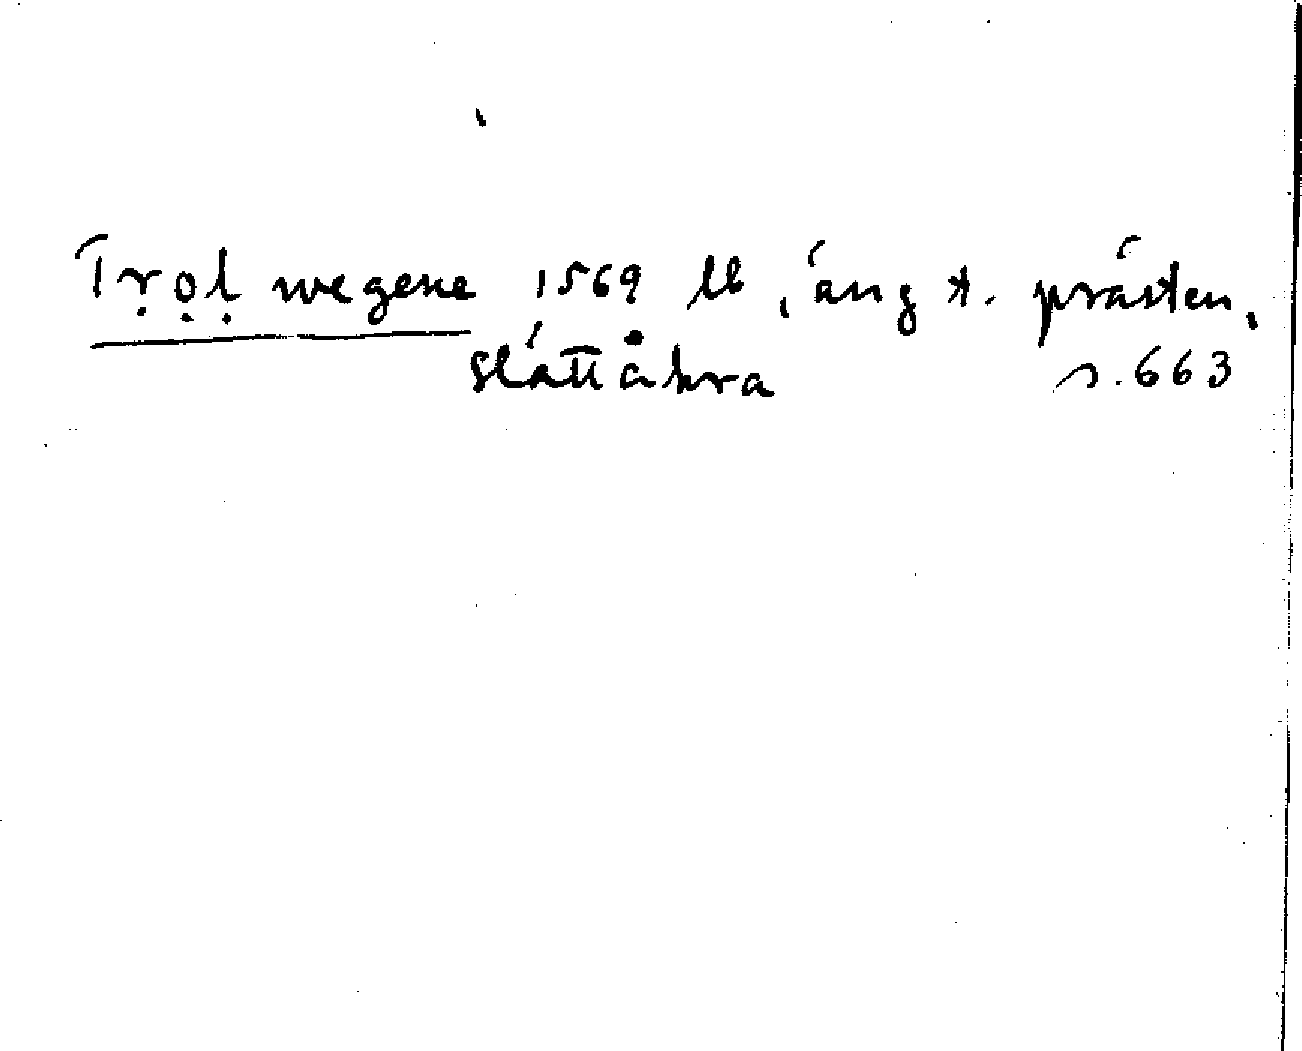 Tṛọḷ wegene 1569 lb, äng t. prästen,
Slättåkra s. 663